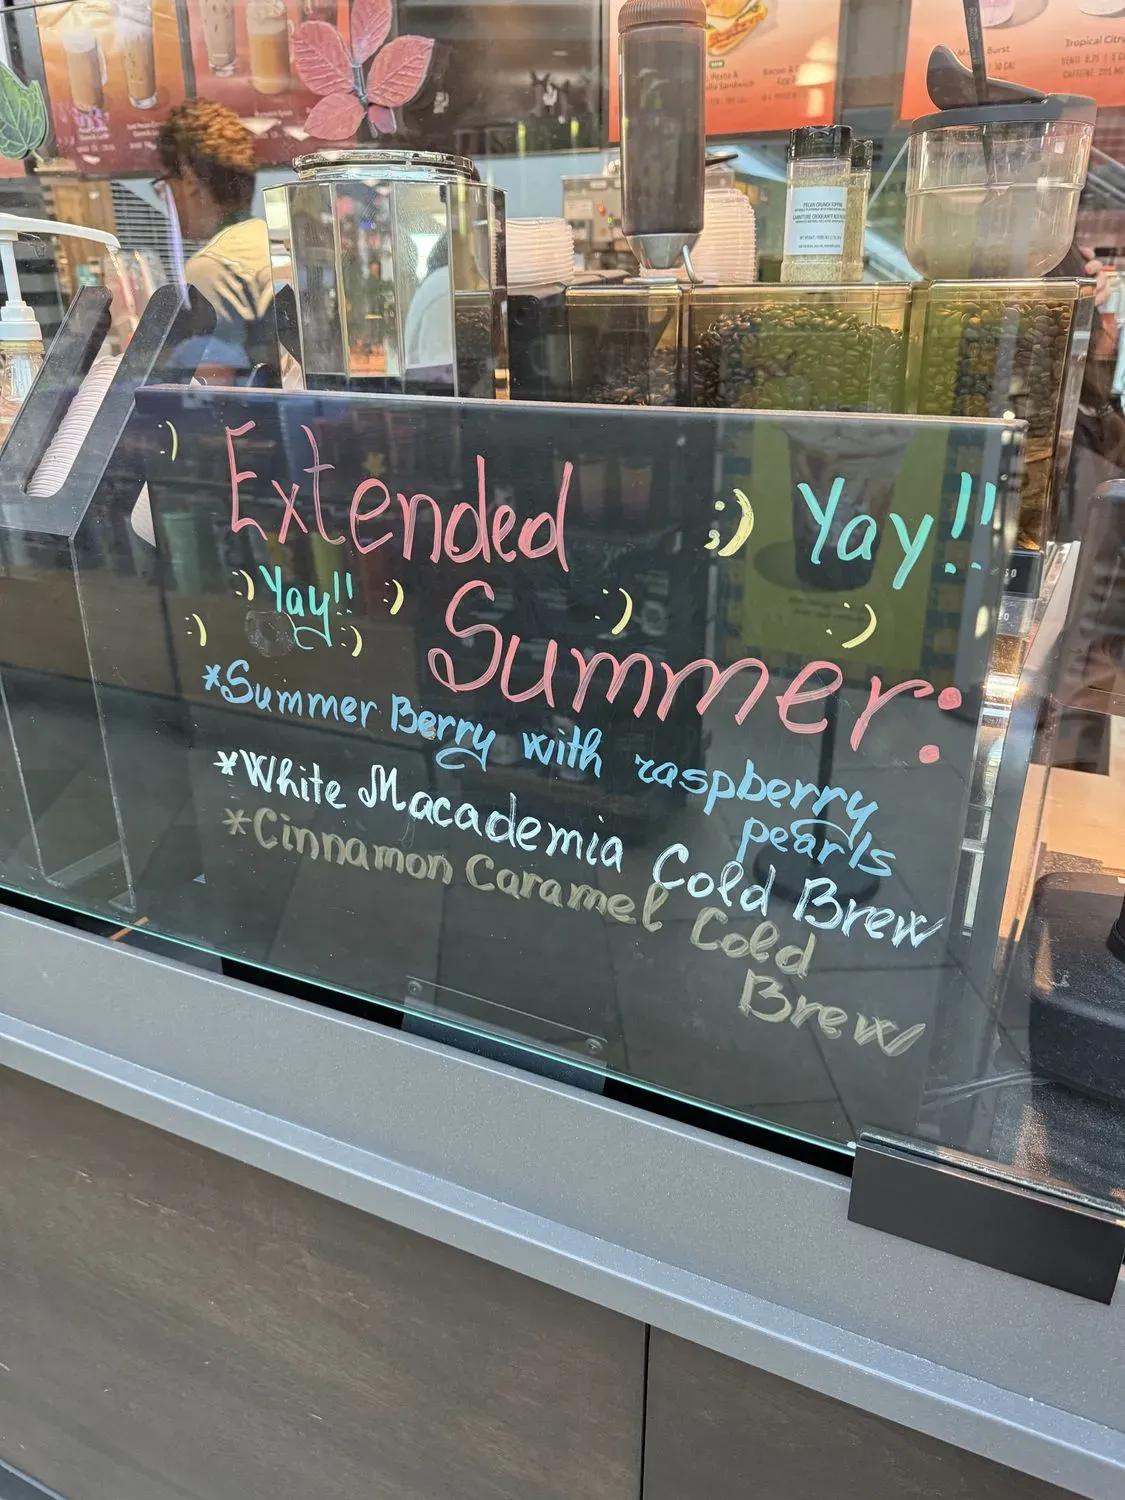 Pesto &
Sandwich
Bacon &
Egg
Burst
Tropical Citrus
PECAN CRUNCH TOPPING
GARNITURE CROQUANTE AUX
:) Extended ;) Yay!!
:) Yay!! :) Summer: :) :)
:) :)
*Summer Berry with raspberry
pearls
*White Macademia Cold Brew
*Cinnamon Caramel Cold
Brew